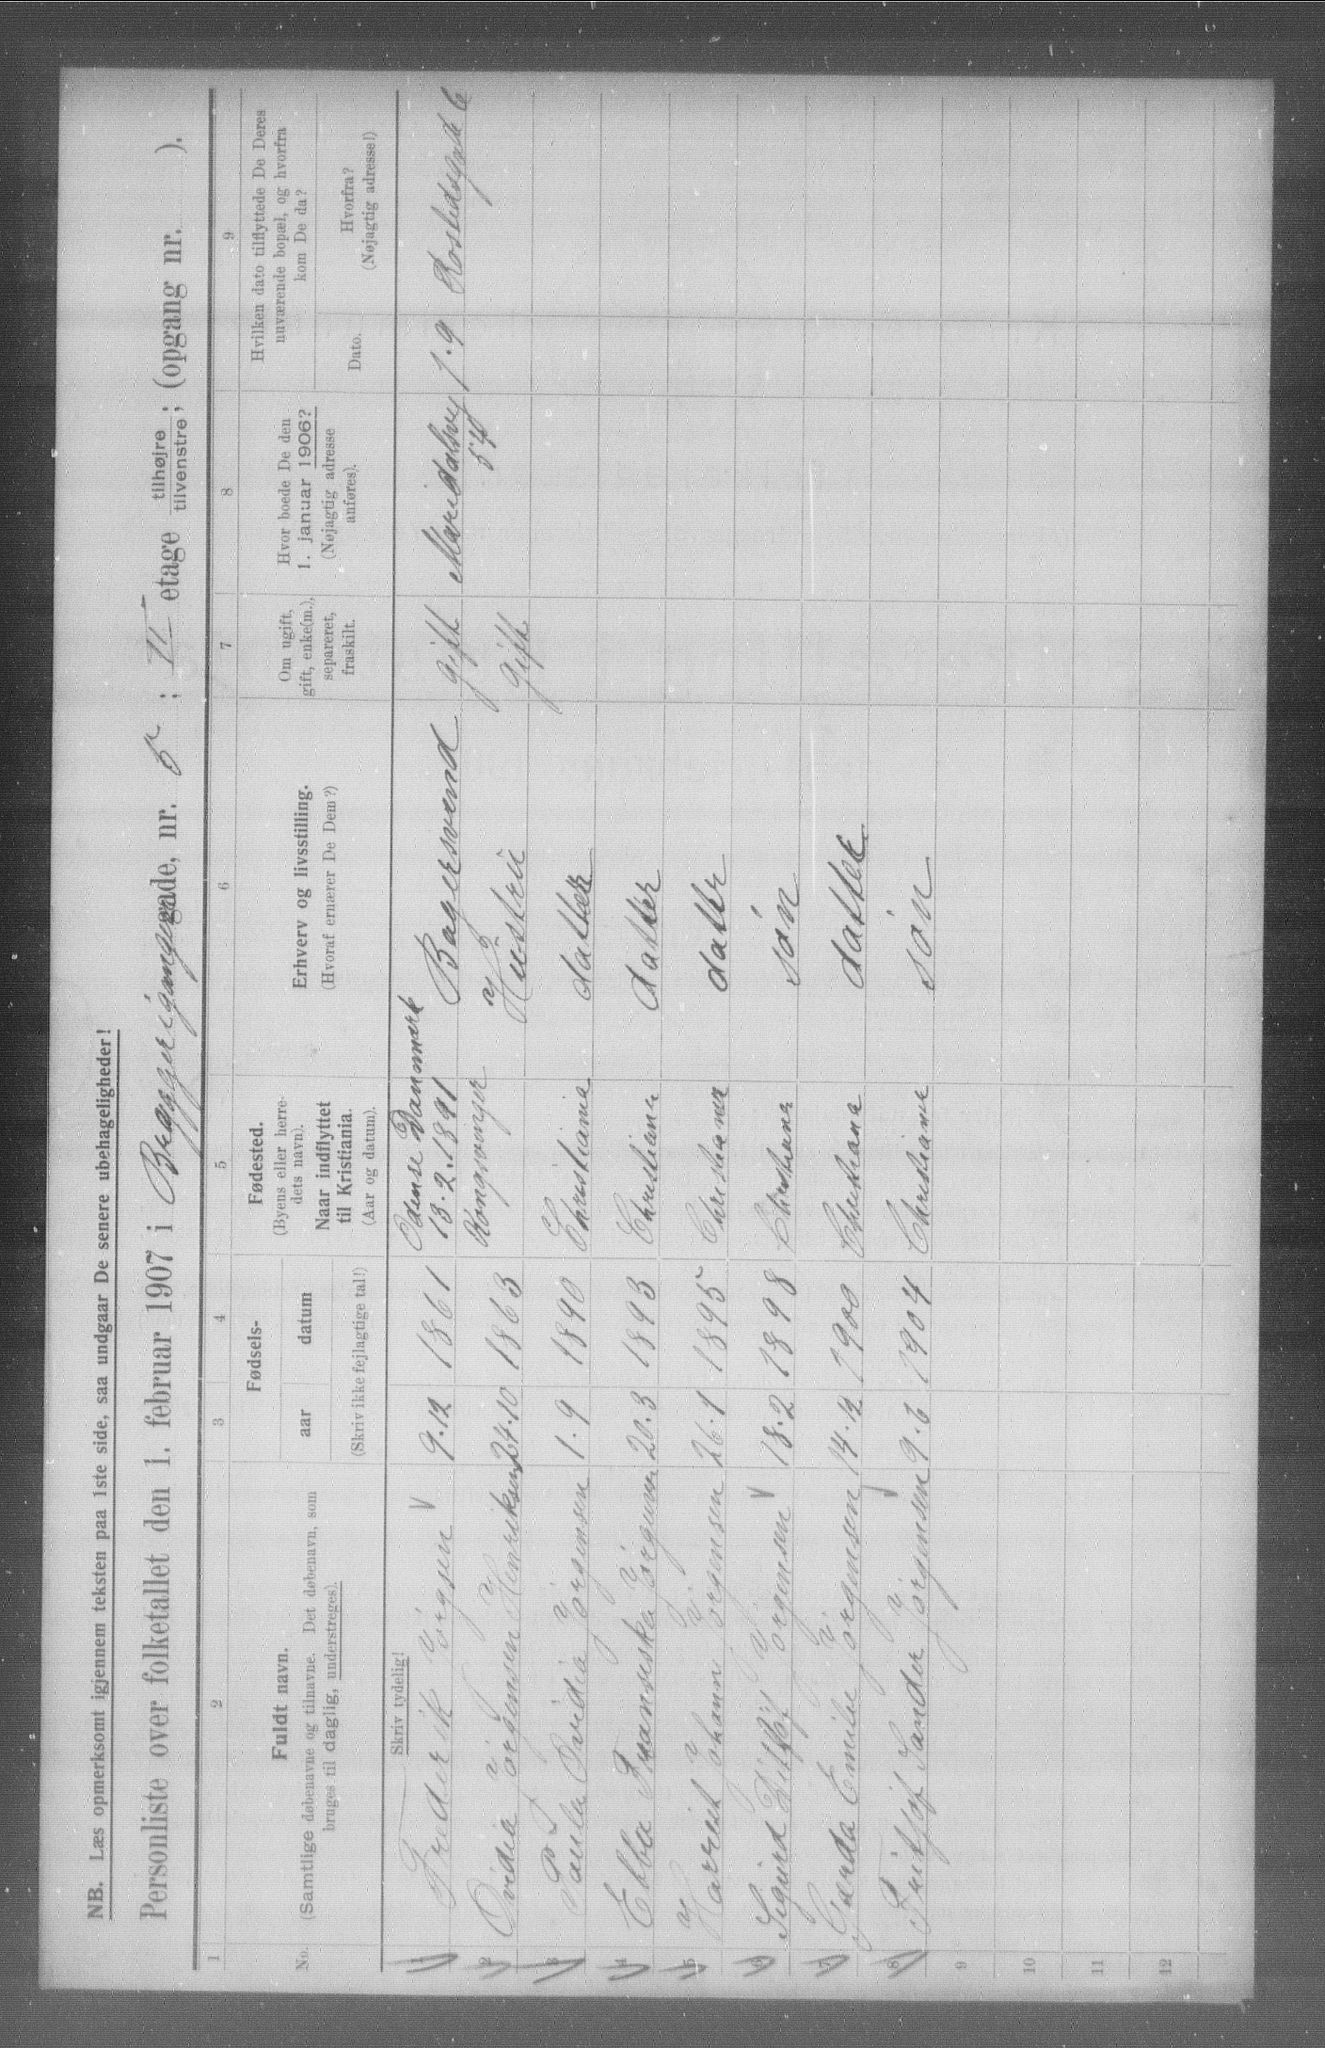 NB. Læs opmerksomt igjennem teksten paa 1ste side, saa undgaar De senere ubehageligheder!
Personliste over folketallet den 1. februar 1907 i Bryggerigangen gade, nr. 5 ; II etage tilhøjre tilvenstre; (opgang nr. ).
1 2 3 4 5 6 7 8 9
No.
Fuldt navn.
(Samtlige døbenavne og tilnavne. Det døbenavn, som
bruges til daglig, understreges).
Skriv tydelig!
Fødsels-
aar datum
(Skriv ikke fejlagtige tal!)
Fødested.
(Byens eller herre-
dets navn).
Naar indflyttet
til Kristiania.
(Aar og datum).
Erhverv og livsstilling.
(Hvoraf ernærer De Dem?)
Om ugift,
gift, enke(m.),
separeret,
fraskilt.
Hvor boede De den
1. januar 1906?
(Nøjagtig adresse
anføres).
Hvilken dato tilflyttede De Deres
nuværende bopæl, og hvorfra
kom De da?
Dato.
Hvorfra?
(Nøjagtig adresse!)
Odense Danmark
1 Frederik Jörgsen 9.12 1861 18.2.1891 Bagersvend gift Maridalsvej 54 1.9
2 Ovidia Jörgensen Henriksen 24.10 1863 Kongsvinger Hustru gift
3 Paula Ovidia Jörgensen 1.9 1890 Christiania datter
4 Ebba Franseska Jörgensen 20.3 1893 Christiania datter
5 Harriet Johanne Jörgensen 26.1 1895 Christiania datter
6 Sigurd Jörgensen 18.2 1898 Christiania søn
7 Gerda Emilie Jörgensen 14.12 1900 Christiana datter
8 Fritjof Sander Jörgensen 9.6 1904 Christiane søn
9
10
11
12